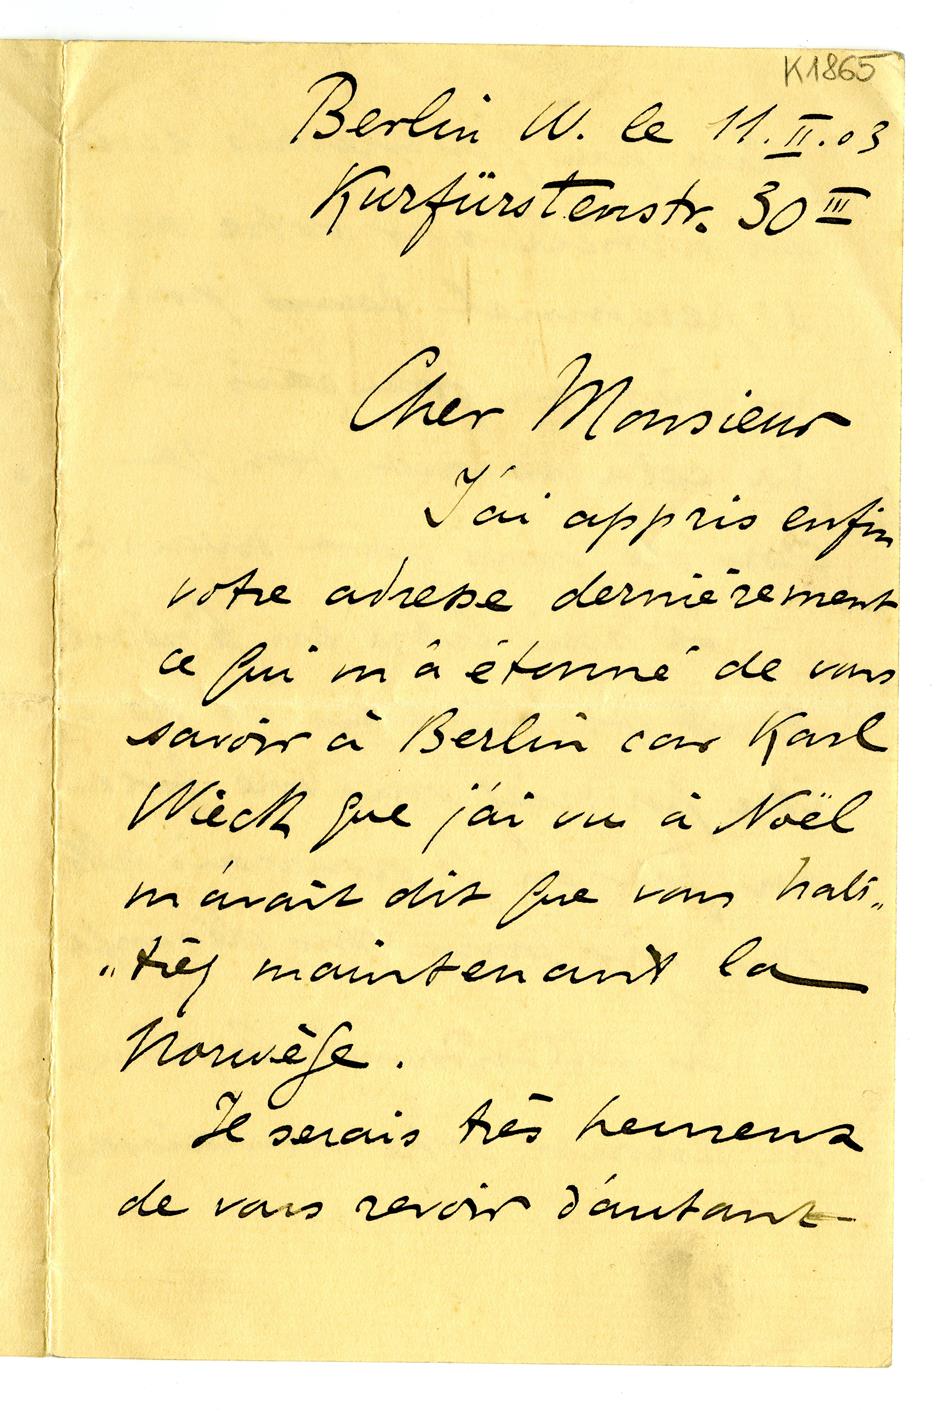 K1865
Berlin W. le 11.II.03
Kurfürstenstr. 30 III
Cher Monsieur
J'ai appris enfin
votre adresse dernièrement
ce qui m'a étonné de vous
savoir à Berlin car Karl
Wieck que j'ai vu à Noël
m'avait dit que vous habi„
„tiez maintenant la
Norwège.
Je serais très heureux
de vous revoir d'autant